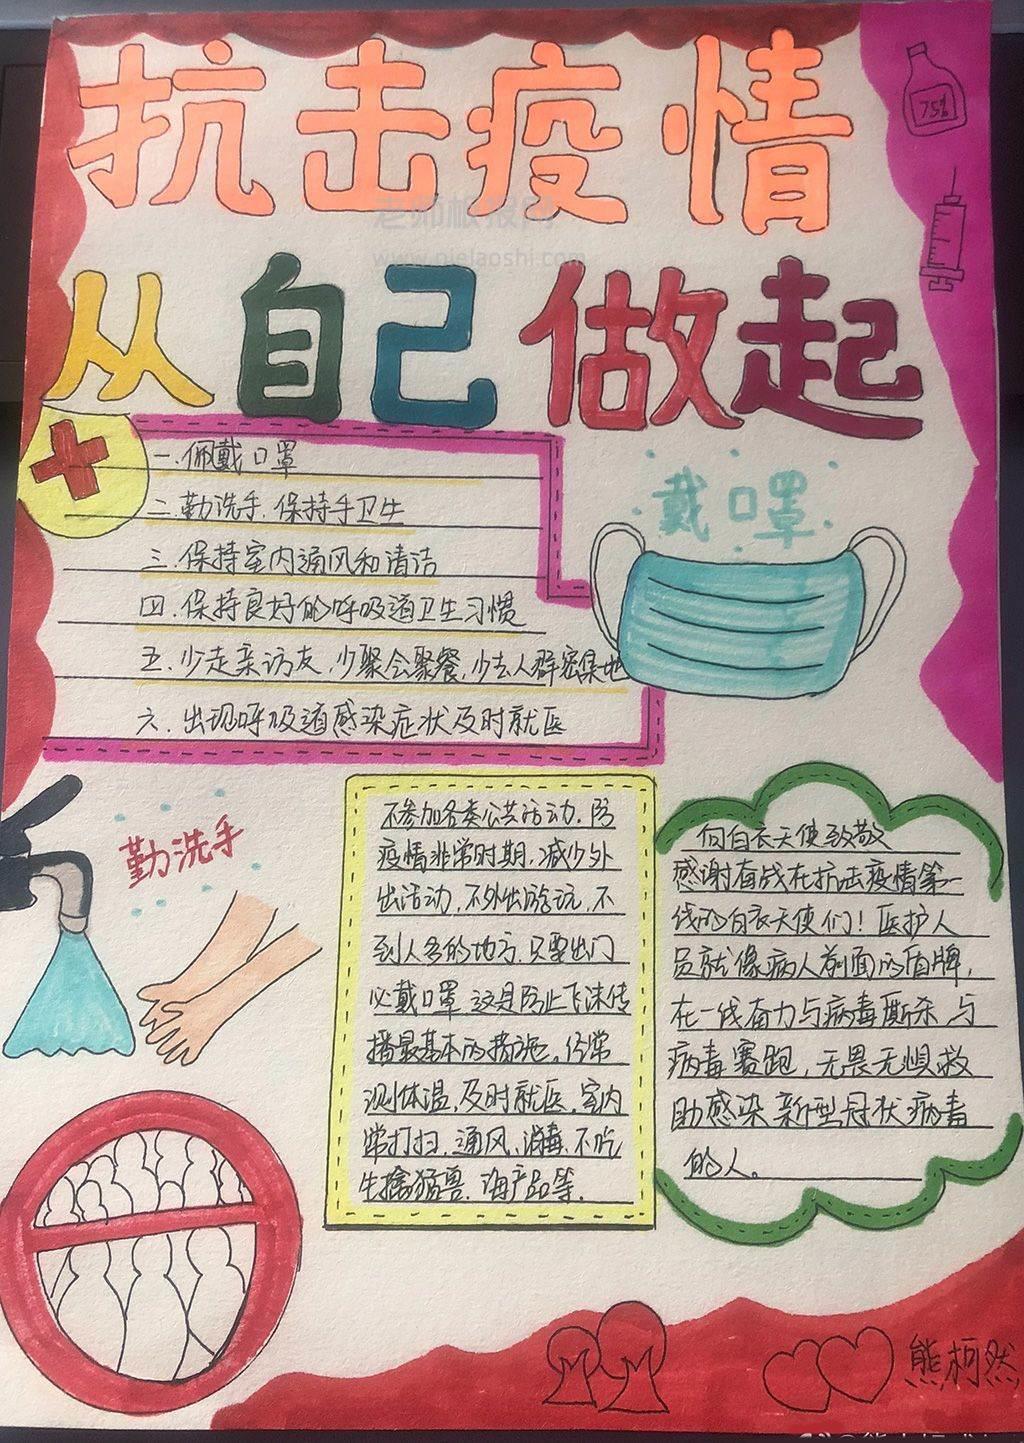 抗击疫情
75%
老师板报网
从自己做起
一.佩戴口罩
二.勤洗手.保持手卫生
三.保持室内通风和清洁
四.保持良好的呼吸道卫生习惯
五.少走亲访友,少聚会聚餐,少去人群密集地
六.出现呼吸道感染症状及时就医
戴口罩
勤洗手
不参加各类公共活动.防
疫情非常时期.减少外
出活动.不外出游玩.不
到人多的地方.只要出门
必戴口罩.这是防止飞沫传
播最基本的措施。经常
测体温.及时就医.室内
常打扫.通风.消毒.不吃
生擒猛兽.海产品等.
向白衣天使致敬
感谢奋战在抗击疫情第一
线的白衣天使们!医护人
员就像病人前面的盾牌,
在一线奋力与病毒厮杀.与
病毒赛跑,无畏无惧救
助感染新型冠状病毒
的人。
熊柯然